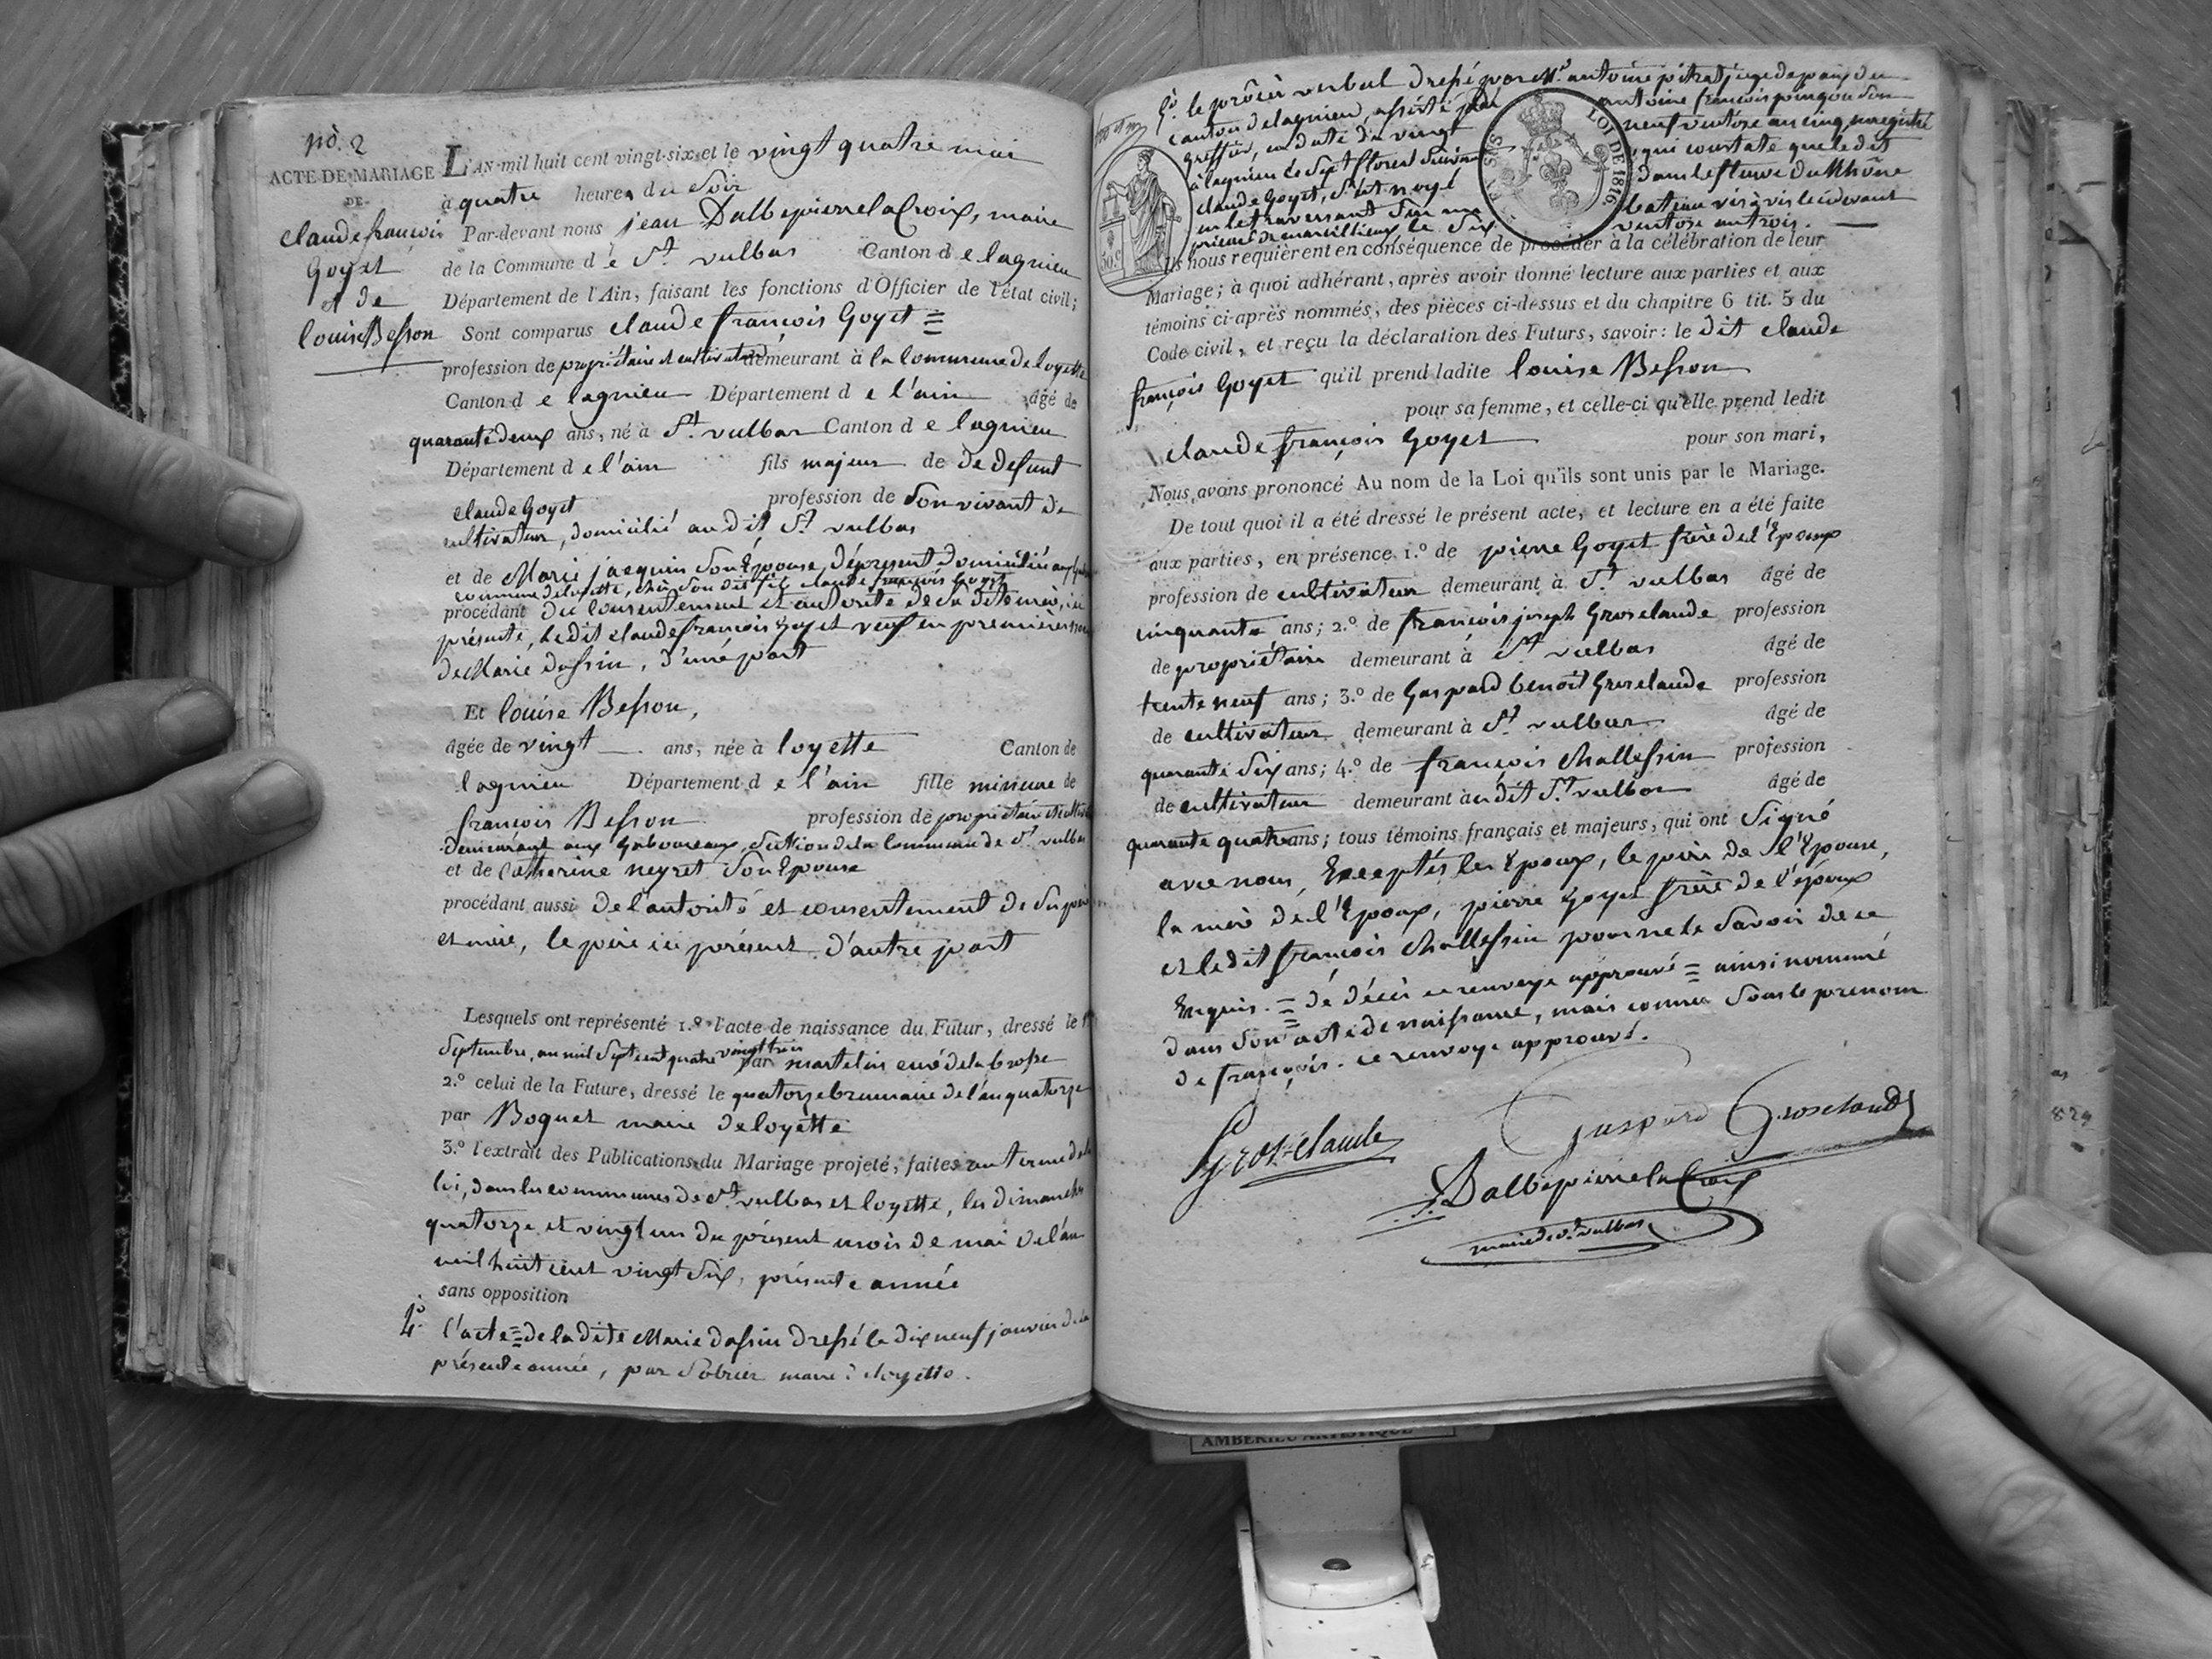 nò. 2
ACTE DE MARIAGE
DE
claude françois
Goyet
et de
louise Besson
L'AN mil huit cent vingt-six et le vingt quatre mai
à quatre heures du soir
Par-devant nous jean Dalbepierre la Croix, maire
de la Commune d e St. vulbas Canton d e lagnieu
Département de l'Ain, faisant les fonctions d'Officier de l'état civil;
Sont comparus claude françois Goyet =
profession de propriétaire et cultivateur demeurant à la commune de loyette
Canton d e lagnieu Département d e l'ain âgé de
quarante deux ans, né à St. vulbas Canton d e lagnieu
Département d e l'ain fils majeur de de defunt
claude Goyet profession de son vivant de
cultivateur, domicilié au dit St. vulbas
et de Marie jacquin son Epouse, déprésent domiciliée
commune de loyette, chès son dit fils claude françois Goyet
procédant du consentement et autorité de sa dite mère, ici
présente, le dit claude françois Goyet veuf en premières
de Marie dassin, d'une part
Et louise Besson,
âgée de vingt ans, née à loyette Canton de
lagnieu Département d e l'ain fille mineure de
françois Besson profession de propriétaire
demeurant aux Gaboureaux, section de la commune de St. vulbas
et de Catherine neyret son Epouse
procédant aussi de l'autorité et consentement de ses père
et mère, le père ici présent d'autre part
Lesquels ont représenté 1.º l'acte de naissance du Futur, dressé le
septembre, an mil sept cent quatre vingt trois par martelin curé de la brosse
2.º celui de la Future, dressé le quatorze brumaire de l'an quatorze
par Boquet maire de loyette
3.º l'extrait des Publications du Mariage projeté, faites au terme de la
loi, dans les communes de St. vulbas et loyette, les dimanches
quatorze et vingt un du présent mois de mai de l'an
mil huit cent vingt six, présente année
sans opposition
4.º l'acte = de la dite Marie dassin dressé le dix neuf janvier de la
présente année, par Sobrier maire de loyette.
5.º le procès verbal dressé par Me. antoine pitrat juge de paix du
canton de lagnieu, assisté par antoine françois poingon son
greffier, en date du vingt neuf ventose an cinq, enregistré
à lagnieu le sept floreal suivant, qui constate que le dit
claude Goyet, s'est noyé dans le fleuve du Rhône
en le traversant sur un bateau vis à vis le cidevant
prieuré de marcillieux le six ventose an trois.
50.c
LOI DE 1816
Ils nous requièrent en conséquence de procéder à la célébration de leur
Mariage; à quoi adhérant, après avoir donné lecture aux parties et aux
témoins ci-après nommés, des pièces ci-dessus et du chapitre 6 tit. 5 du
Code civil, et reçu la déclaration des Futurs, savoir: le dit claude
françois Goyet qu'il prend ladite louise Besson
pour sa femme, et celle-ci qu'elle prend ledit
claude françois Goyet pour son mari,
Nous avons prononcé Au nom de la Loi qu'ils sont unis par le Mariage.
De tout quoi il a été dressé le présent acte, et lecture en a été faite
aux parties, en présence 1.º de pierre Goyet frère de l'Epoux
profession de cultivateur demeurant à St. vulbas âgé de
cinquante ans; 2.º de françois joseph Grosclaude profession
de propriétaire demeurant à St. vulbas âgé de
trente neuf ans; 3.º de Gaspard benoit Grosclaude profession
de cultivateur demeurant à St. vulbas âgé de
quarante six ans; 4.º de françois Challessin profession
de cultivateur demeurant audit St. vulbas âgé de
quarante quatre ans; tous témoins français et majeurs, qui ont signé
avec nous, Exceptés les Epoux, le père de l'Epouse,
la mère de l'Epoux, pierre Goyet frère de l'époux
et le dit françois Challessin pour ne le savoir de ce
Enquis. = de décès ce renvoye approuvé = ainsi nommé
dans son acte de naissance, mais connu sous le prenom
de françois. ce renvoye approuvé.
Grosclaude
Gaspard Grosclaude
Dalbepierre la Croix
maire de St. vulbas
AMBERIEU ARTISTIQUE